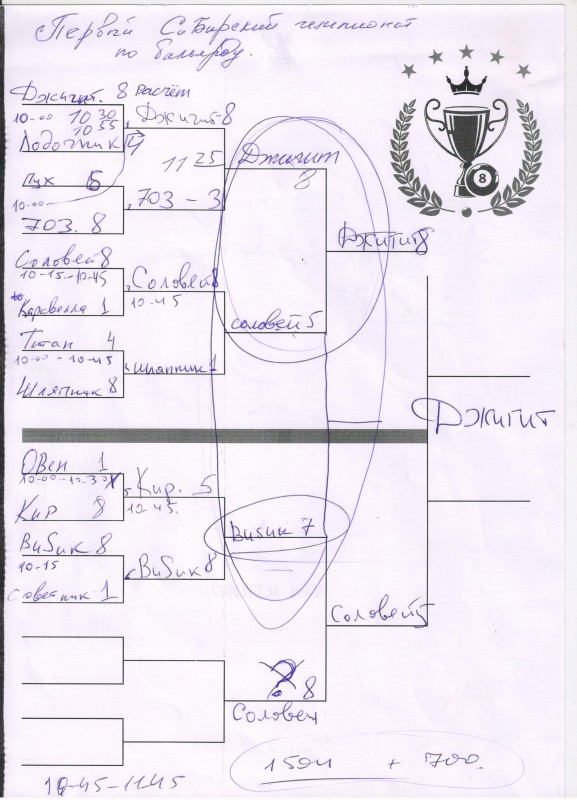 Первый Сибирский чемпионат
по бильярду.
Джигит. 8 расчёт
10-00 10 30
10 55
Лодочник 4
Джигит-8
11 25
Пух 6
10-00
703. 8
703 - 3
Джигит
8
8
Джигит 8
Соловей 8
10-15-10-45
Каравелла 1
Соловей 8
10-45
Соловей 5
Титан 4
10-00-10-45
Шляпник 8
Шляпник 1
Джигит
Овен 1
10-00-10-30
Кир 8
Кир. 5
10-45.
Визик 7
Визик 8
10-15
Советник-1
Визик 8
Соловей 5
? 8
Соловей
10-45-1145
150ч + 700.